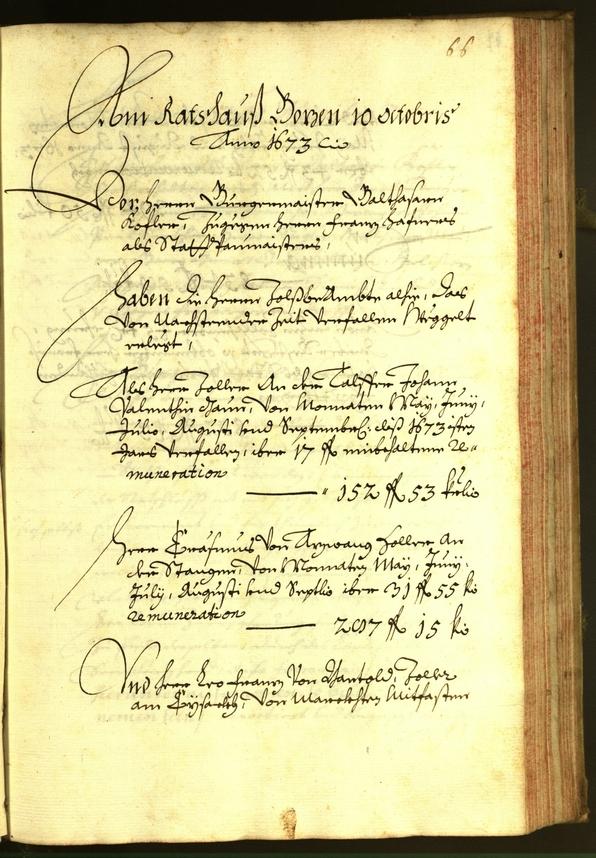 66
Am Ratshauß Bozen 10 octobris
Anno 1673
Vor herrn Burgermaister Balthasarn
Kofler, Zugegen herrn Franz Hafners
als Statpaumaisters,
Haben die herrn Zohlbeambte alhie, das
von Nachsteender Zeit verfallen Weggelt
erlegt,
Als herr Zoller An der Talffer Johann
Valenthin Haun, von Monnaten May, Juny,
Julio, Augusti und September diß 1673isten
Jars verfallen, iber 17 fl mitbehaltene Re-
muneration
152 fl 53 
Herr Eraßmus von Arzwang Zoller An
der Stangen, von Monnaten May, Juny,
July, Augusti und Septbr iber 31 fl 55 kr
remuneration
207 fl 15 kr
Und herr Leo Franz von Zoller
am Eysackh, von Mitfasten